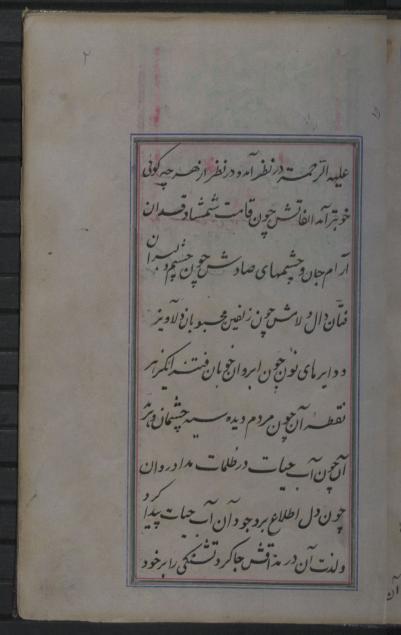 ٢
علیه الرحمة در نظر آمد و در نظر از هر چه گوئی
خوبتر آمد الفاتش چون قامت شمشاد قدان
آرام جان و چشمهای صادش چون چشم دلبران
فتان دال و لامش چون زلفین محبوبان دلاویز
و دایرهای نون چون ابروان خوبان فتنه انگیز هر
نقطه آن چون مردم دیده سیه چشمان و هر مد
آن چون آب حیات در ظلمات مداد روان
چون دل اطلاع بر وجود آن آب حیات پیدا کرد
و لذت آن در مذاقش جا کرد تشنگی را بر خود